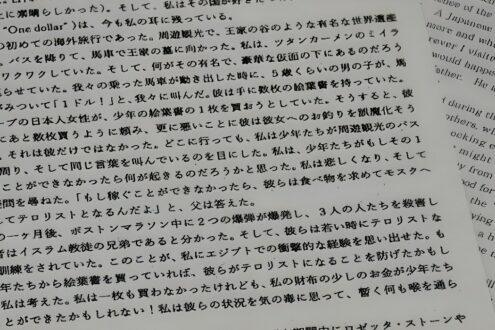 に素晴らしかった)。そして、私はその国が好き
“One dollar”)は、今も私の耳に残っている。
の初めての海外旅行であった。周遊観光で、王家の谷のような有名な世界遺産
。バスを降りて、馬車で王家の墓に向かった。私は、ツタンカーメンのミイラ
ワクワクしていた。そして、何がその有名で、豪華な仮面の下にあるのだろう
らせていた。我々の乗った馬車が動き出した時に、５歳くらいの男の子が、馬
みついて「１ドル！」と、我々に叫んだ。彼は手に数枚の絵葉書を持っていた。
ープの日本人女性が、少年の絵葉書の１枚を買おうとしていた。そうすると、彼
にあと数枚買うように頼み、更に悪いことに彼は彼女へのお釣りを誤魔化そう
、それは彼だけではなかった。どこに行っても、私は少年たちが周遊観光のバス
周り、そして同じ言葉を叫んでいるのを目にした。私は、少年たちがもしその１
ことができなかったら何が起きるのだろうかと思った。私は悲しくなり、そして
質問を尋ねた。「もし稼ぐことができなかったら、彼らは食べ物を求めてモスクへ
してテロリストとなるんだよ」と、父は答えた。
の一ヶ月後、ボストンマラソン中に２つの爆弾が爆発し、３人の人たちを殺害し
者はイスラム教徒の兄弟であると分かった。そして、彼らは若い時にテロリストな
訓練をされていた。このことが、私にエジプトでの衝撃的な経験を思い出せた。も
年たちから絵葉書を買っていれば、彼らがテロリストになることを防げたかもし
私は考えた。私は一枚も買わなかったけれども、私の財布の少しのお金が少年たち
ことができたかもしれない！私は彼らの状況を気の毒に思って、暫く何も喉を通ら
期間中にロゼッタ・ストーンや
of the
A Japanese